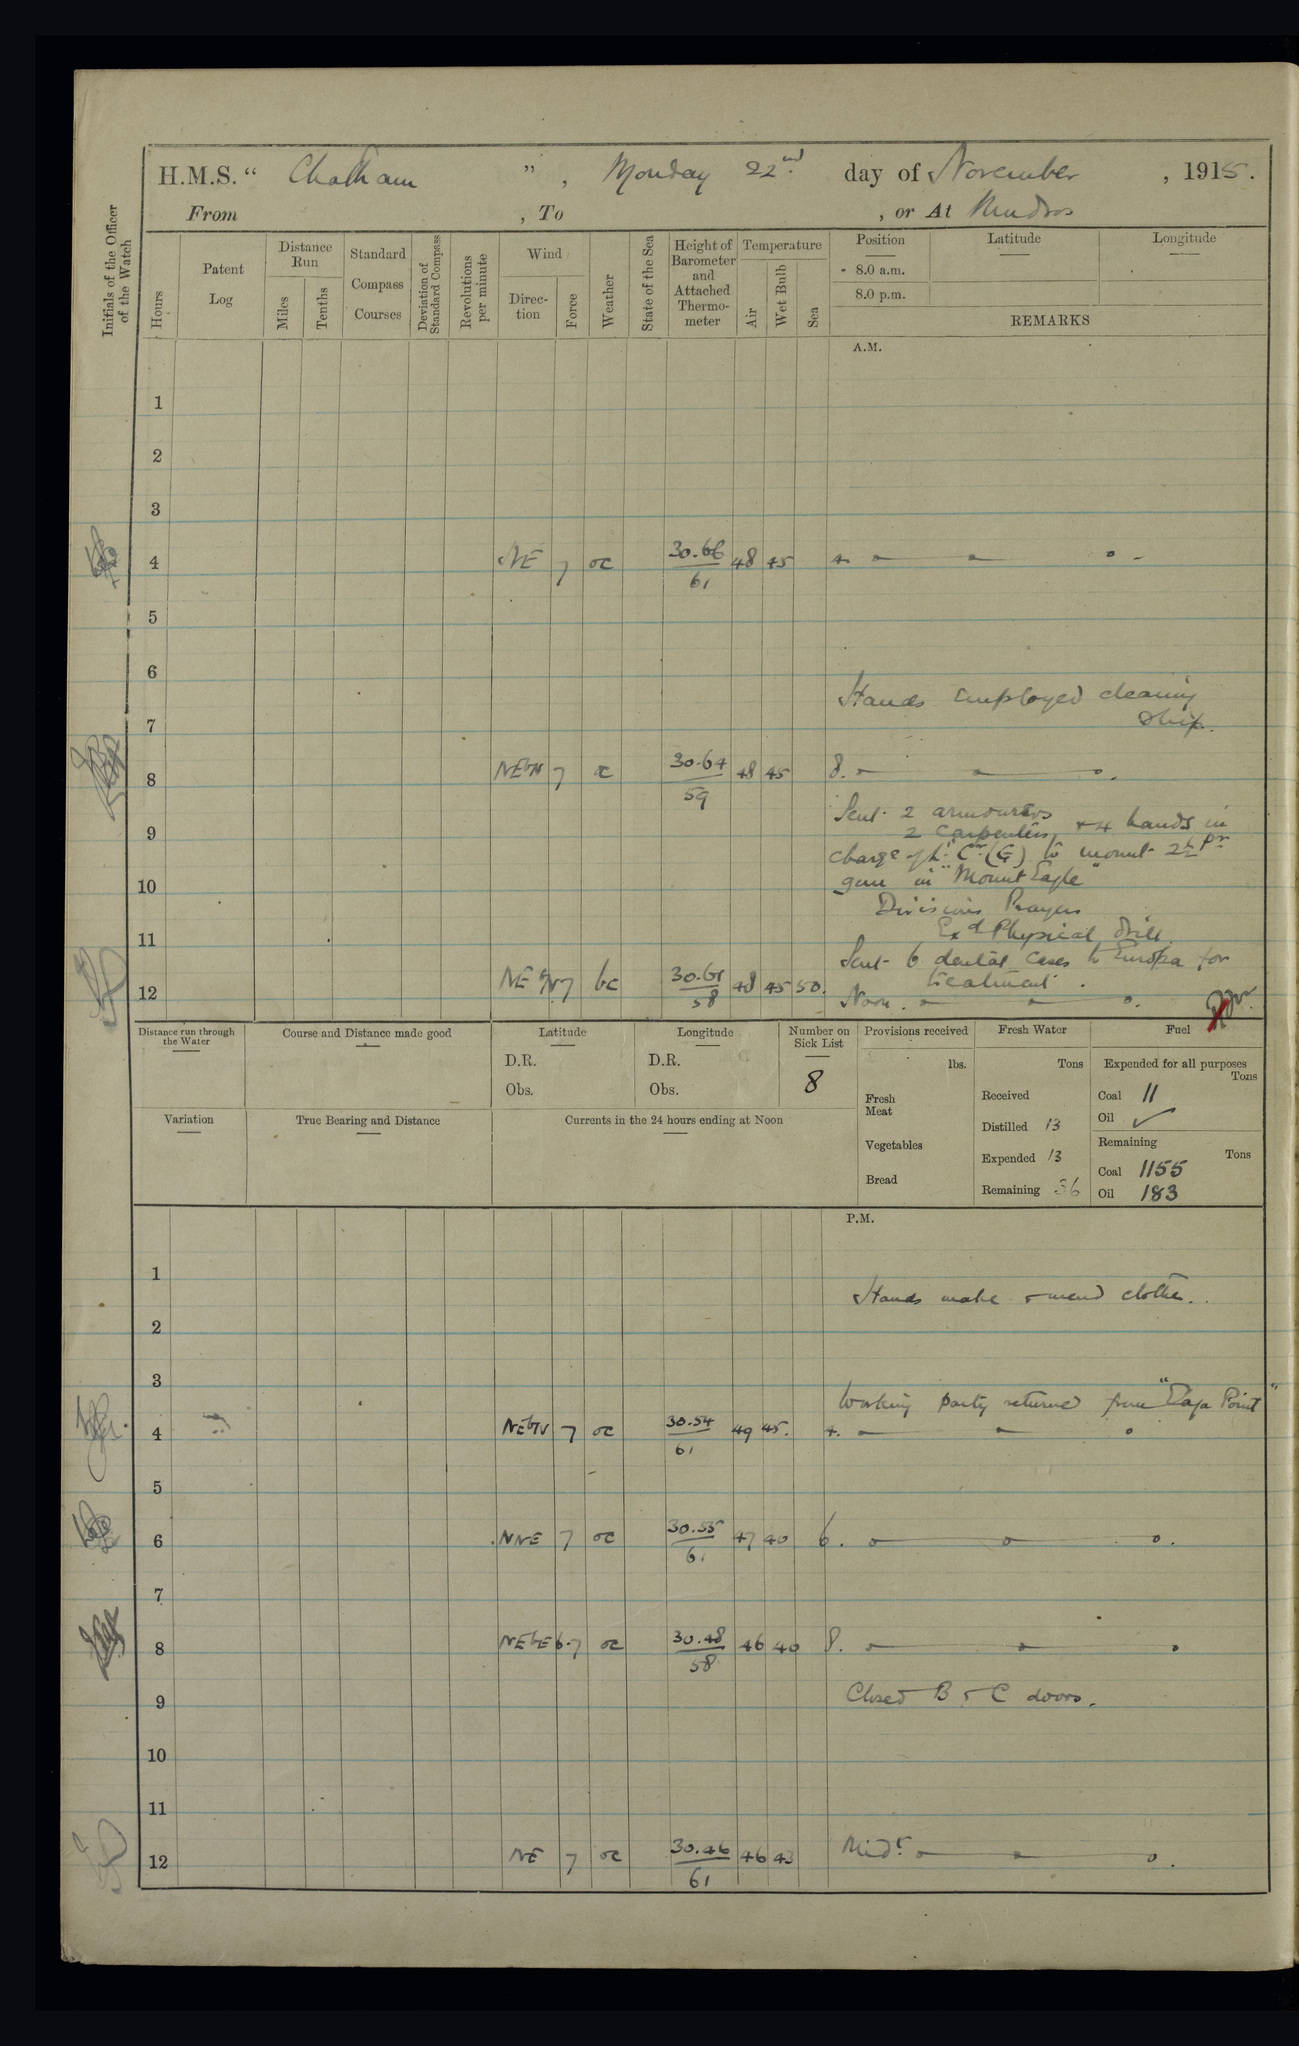 H.M.S. “ Chatham ” , Monday 22nd. day of November , 1915.
From , To , or At Mudros
Initials of the Officer of the Watch
Hours
Patent Log
Distance Run
Miles
Tenths
Standard Compass Courses
Deviation of Standard Compass
Revolutions per minute
Wind
Direction
Force
Weather
State of the Sea
Height of Barometer and Attached Thermometer
Temperature
Air
Wet Bulb
Sea
Position Latitude Longitude
8.0 a.m.
8.0 p.m.
REMARKS
A.M.
1
2
3
4 NE 7 oc 30.66/61 48 45 4.
5
6
Hands employed cleaning
ship.
7
8 NEbN 7 oc 30.64/59 48 45 8.
Sent 2 armourers
2 carpenters, + 4 hands in
9
charge of Lt. Cr. (G) to mount 2½ Pr
gun in "Mount Eagle"
10
Divisions Prayers
Exd Physical drill
11
Sent 6 dental cases to Europa for
treatment.
12 NEbN 7 bc 30.61/58 48 45 50. Noon.
Distance run through the Water
Course and Distance made good
Latitude
D.R.
Obs.
Longitude
D.R.
Obs.
Number on Sick List
8
Provisions received
lbs.
Fresh Meat
Vegetables
Bread
Fresh Water
Tons
Received
Distilled 13
Expended 13
Remaining 36
Fuel
Expended for all purposes
Tons
Coal 11
Oil ✓
Remaining
Tons
Coal 1155
Oil 183
Variation
True Bearing and Distance
Currents in the 24 hours ending at Noon
P.M.
1
Hands make & mend clothes.
2
3
Working party returned from "Eaga Point"
4 NEbN 7 oc 30.54/61 49 45. 4.
5
6 NNE 7 oc 30.55/61 47 40 6.
7
8 NEbE 6-7 oc 30.48/58 46 40 8.
Closed B & C doors.
9
10
11
12 NE 7 oc 30.46/61 46 43 Midt.